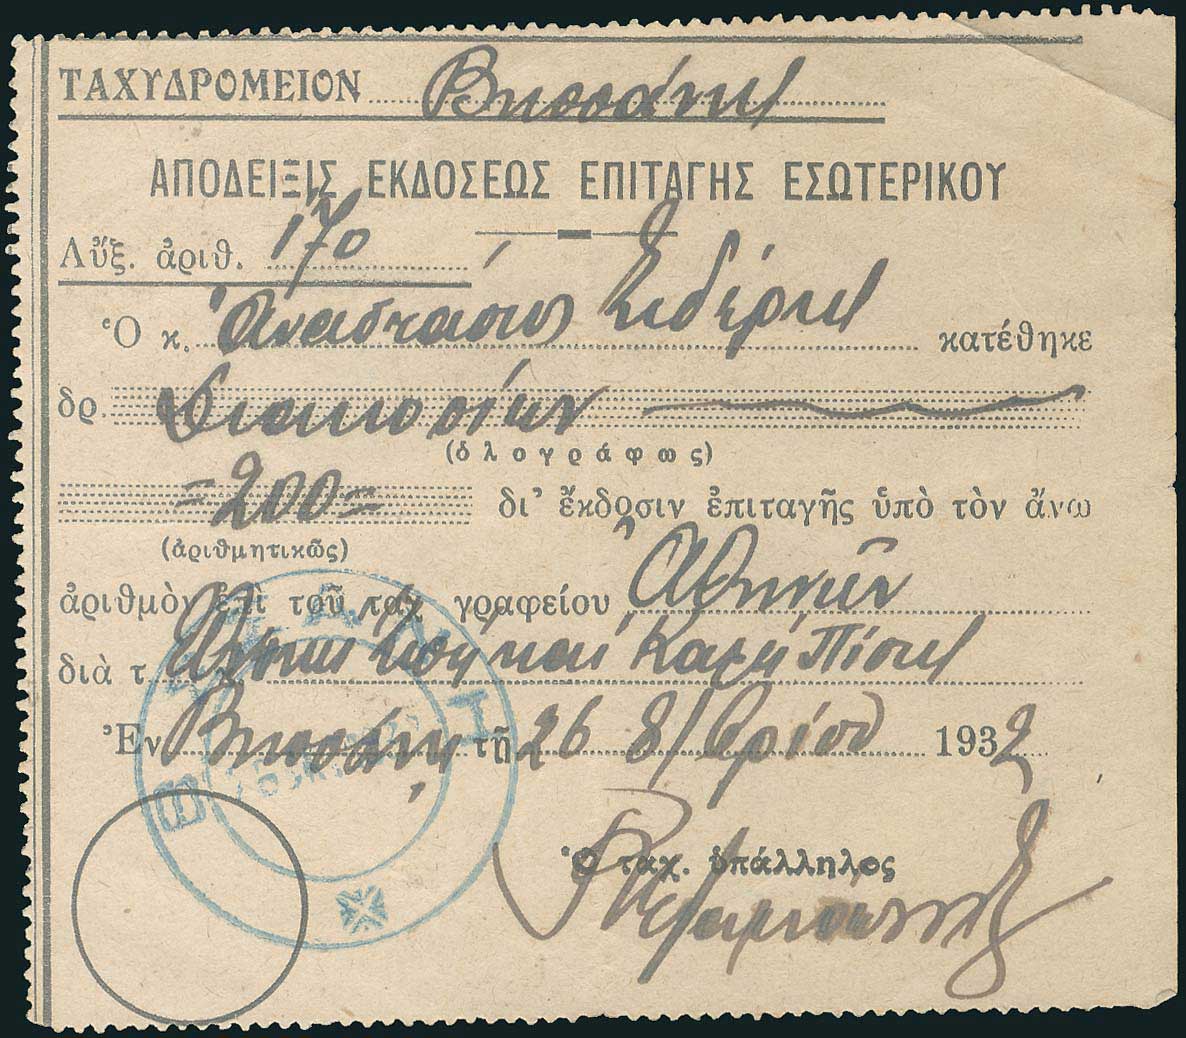 ΤΑΧΥΔΡΟΜΕΙΟΝ Βησσάνης
ΑΠΟΔΕΙΞΙΣ ΕΚΔΟΣΕΩΣ ΕΠΙΤΑΓΗΣ ΕΣΩΤΕΡΙΚΟΥ
Αὔξ. ἀριθ. 170
Ὁ κ. Ἀναστάσιος Σιδέρης κατέθηκε
δρ. διακοσίων
(ὁλογράφως)
=200=
δι' ἔκδοσιν ἐπιταγῆς ὑπὸ τὸν ἄνω
(ἀριθμητικῶς)
ἀριθμὸν ἐπὶ τοῦ ταχ. γραφείου Ἀθηνῶν
διὰ τ. καὶ Καλὴ Πίστις
Ἐν Βησσάνῃ τῇ 26 8/βρίου 1932
Ὁ ταχ. ὑπάλληλος
ΒΗΣΣΑΝΗ